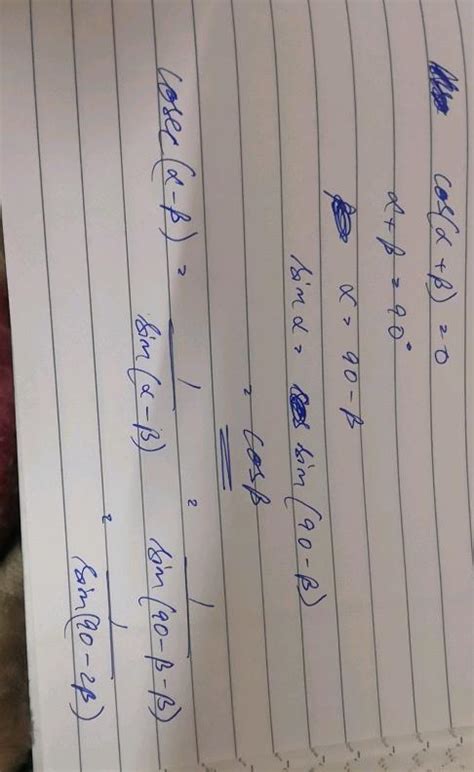 cos(α + β) = 0
α + β = 90°
α = 90 - β
sin α = sin (90 - β)
= cos β
cosec (α - β) = 1 / sin (α - β) = 1 / sin (90 - β - β)
= 1 / sin(90 - 2β)